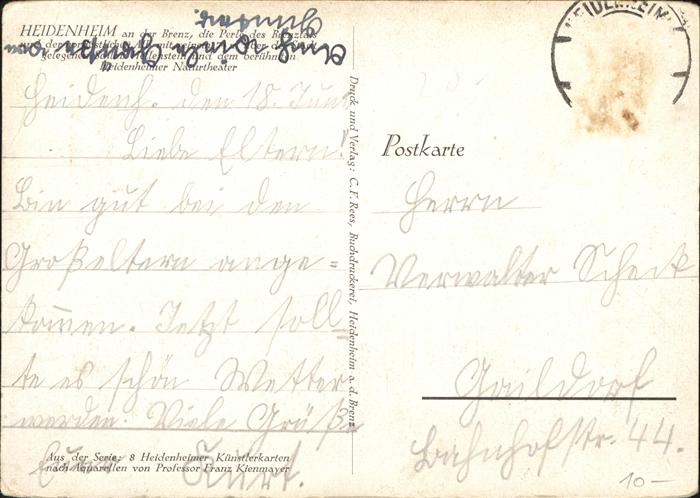 HEIDENHEIM an der Brenz, die Perle des Brenztals
Heidenheimer Naturtheater
Auch viele Grüße von
Heidenh. den 18. Juni
Liebe Eltern!
Bin gut bei den
Großeltern ange=
kommen. Jetzt soll=
te es schön Wetter
werden. Viele Grüße
Euer Kurt.
Aus der Serie: 8 Heidenheimer Künstlerkarten
nach Aquarellen von Professor Franz Kienmayer
Druck und Verlag: C. F. Rees, Buchdruckerei, Heidenheim a. d. Brenz
HEIDENHEIM
Postkarte
Herrn
Verwalter Scheck
Gaildorf
Bahnhofstr. 44.
10—